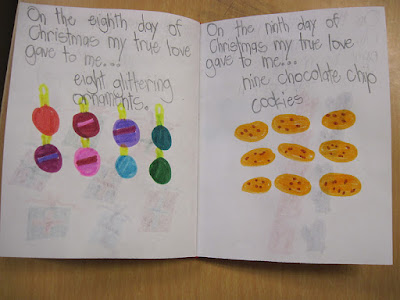 On the eighth day of
Christmas my true love
gave to me...
eight glittering
ornaments.
On the ninth day of
Christmas my true love
gave to me...
nine chocolate chip
cookies